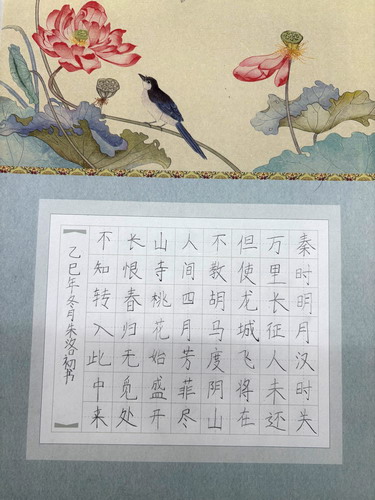 秦时明月汉时关
万里长征人未还
但使龙城飞将在
不教胡马度阴山
人间四月芳菲尽
山寺桃花始盛开
长恨春归无觅处
不知转入此中来
【乙巳年冬月朱洛初书】